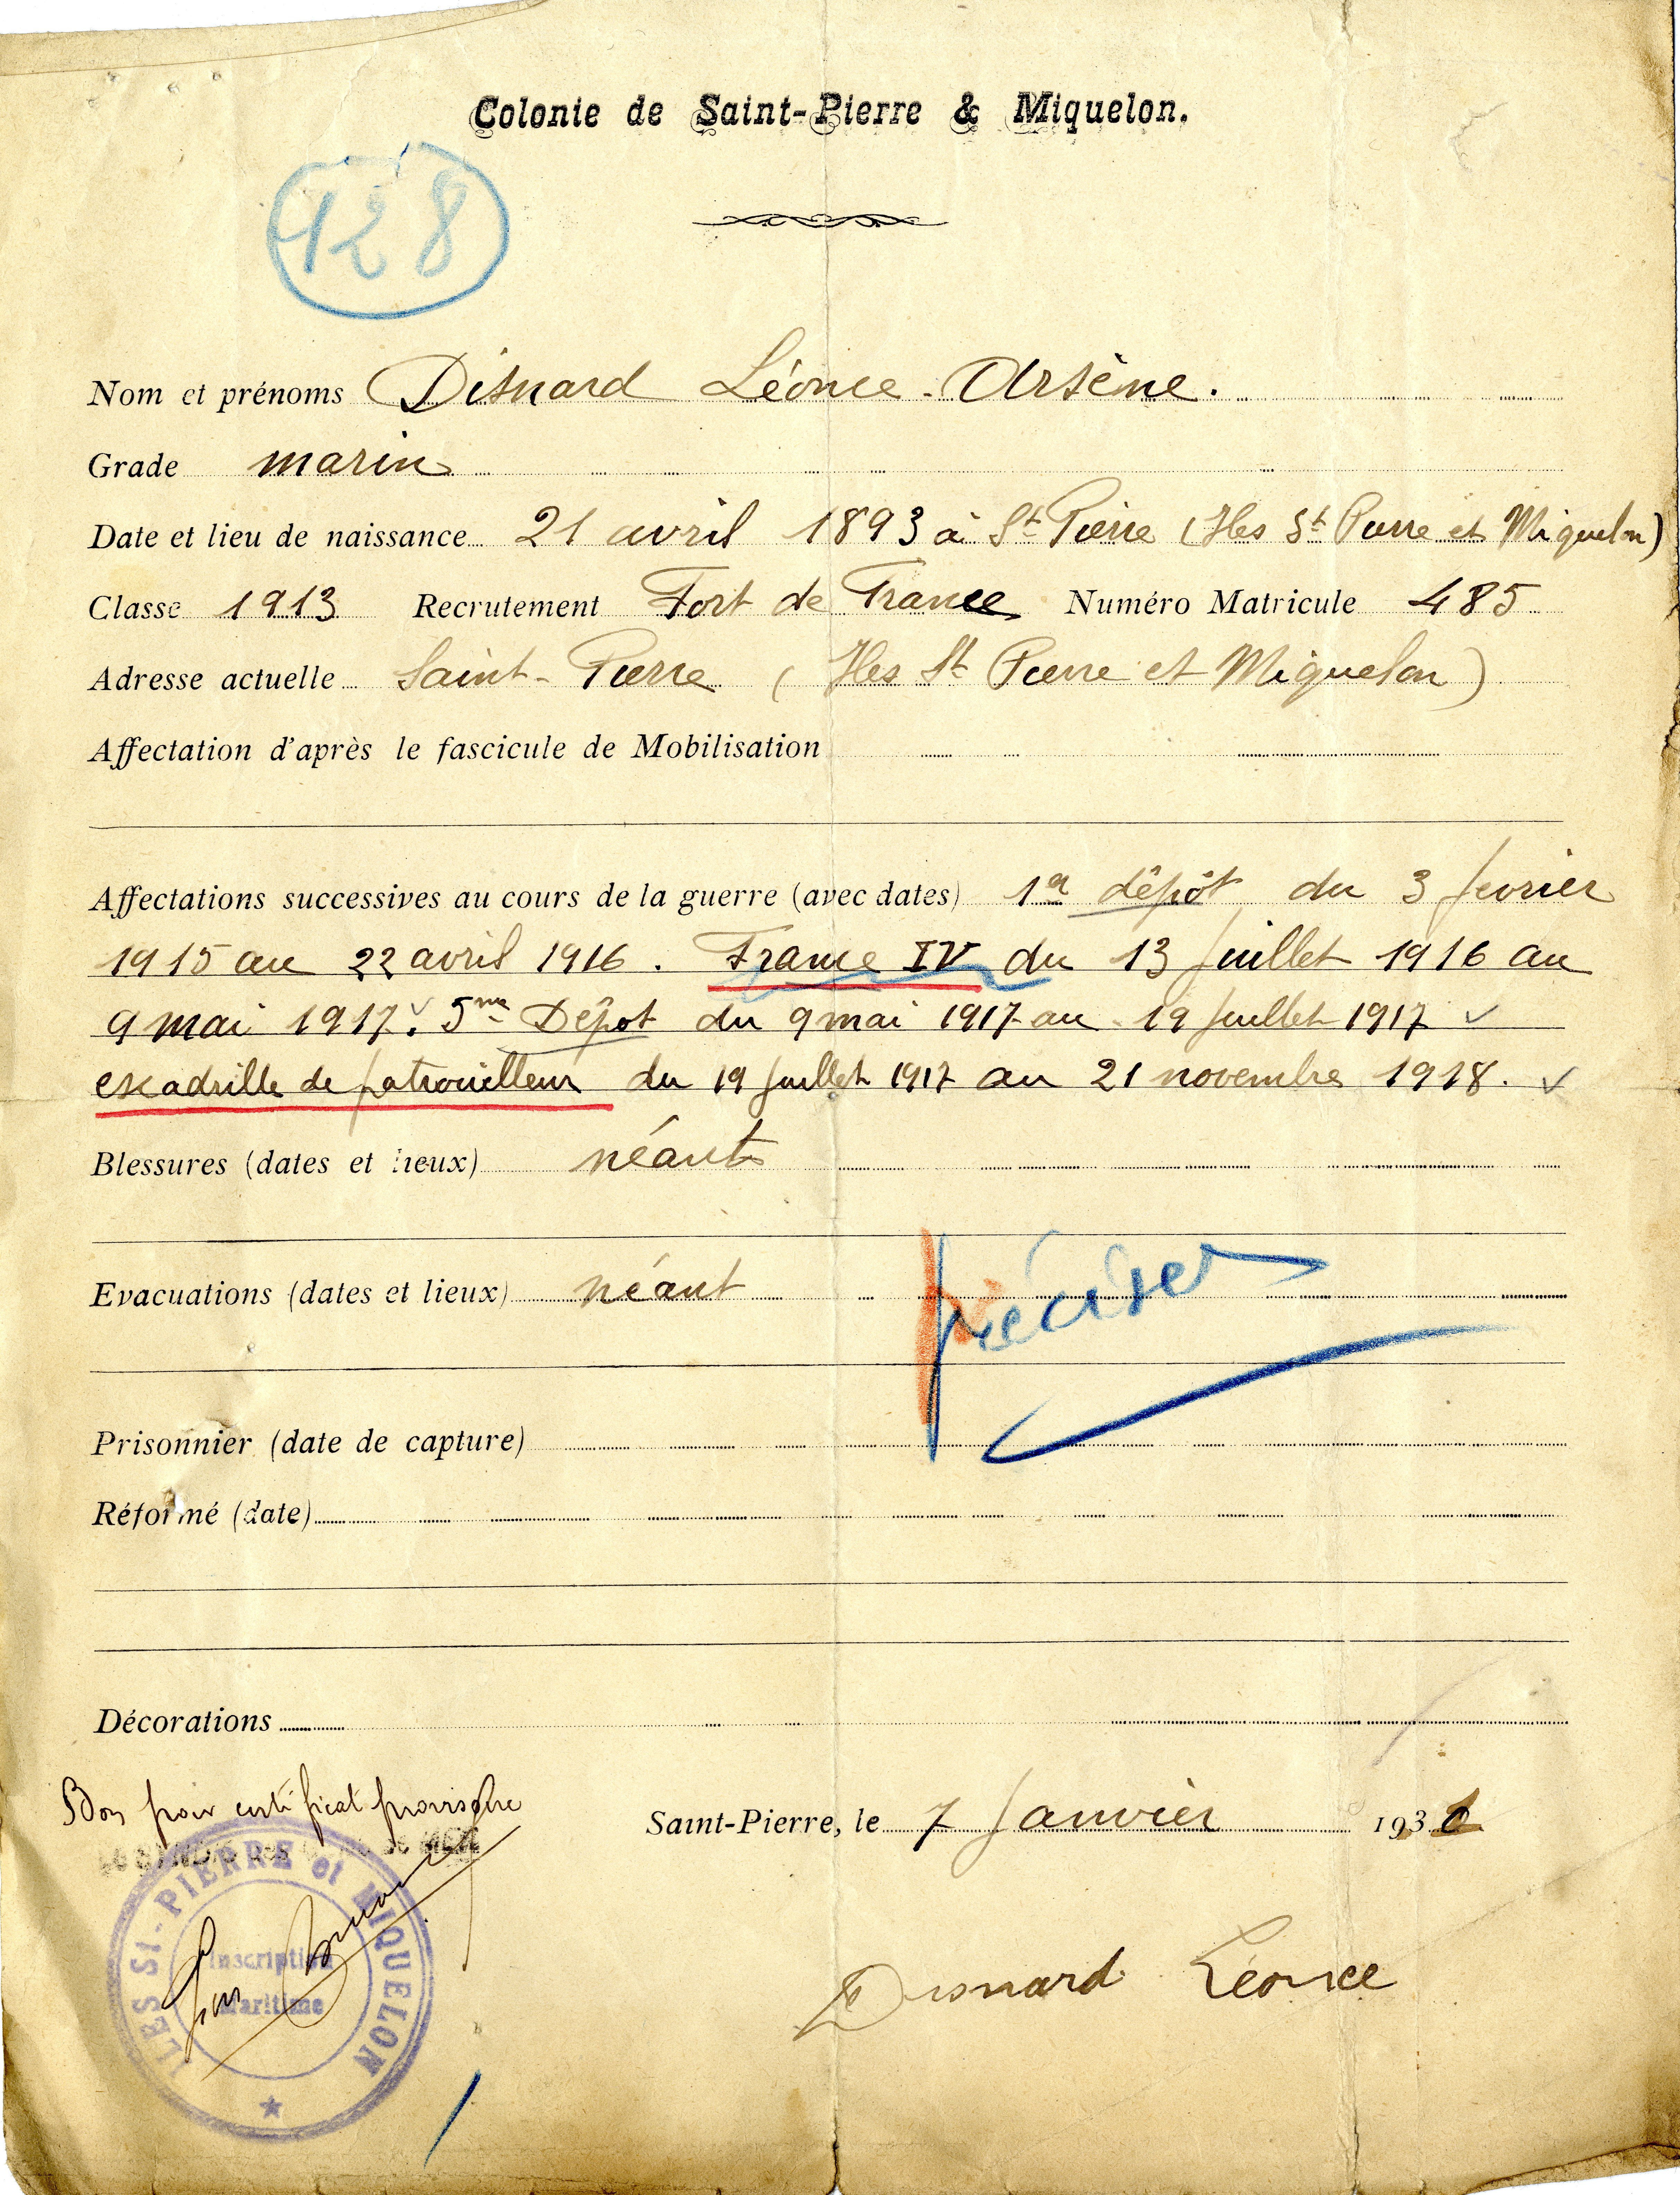 Colonie de Saint-Pierre & Miquelon.
128
Nom et prénoms Disnard Léonce. Arsène.
Grade marin
Date et lieu de naissance 21 avril 1893 à St Pierre (Iles St Pierre et Miquelon)
Classe 1913 Recrutement Fort de France Numéro Matricule 485
Adresse actuelle Saint-Pierre (Iles St Pierre et Miquelon)
Affectation d'après le fascicule de Mobilisation
Affectations successives au cours de la guerre (avec dates) 1er dépôt du 3 fevrier
1915 au 22 avril 1916. France IV du 13 juillet 1916 au
9 mai 1917. 5me Dépot du 9 mai 1917 au 19 juillet 1917 ✓
escadrille de patrouilleur du 19 juillet 1917 au 21 novembre 1918. ✓
Blessures (dates et lieux) néant
Evacuations (dates et lieux) néant
préciser
Prisonnier (date de capture)
Réformé (date)
Décorations
Bon pour certificat provisoire
Saint-Pierre, le 7 Janvier 1930
ILES St-PIERRE et MIQUELON
Inscription
Maritime
Disnard Léonce